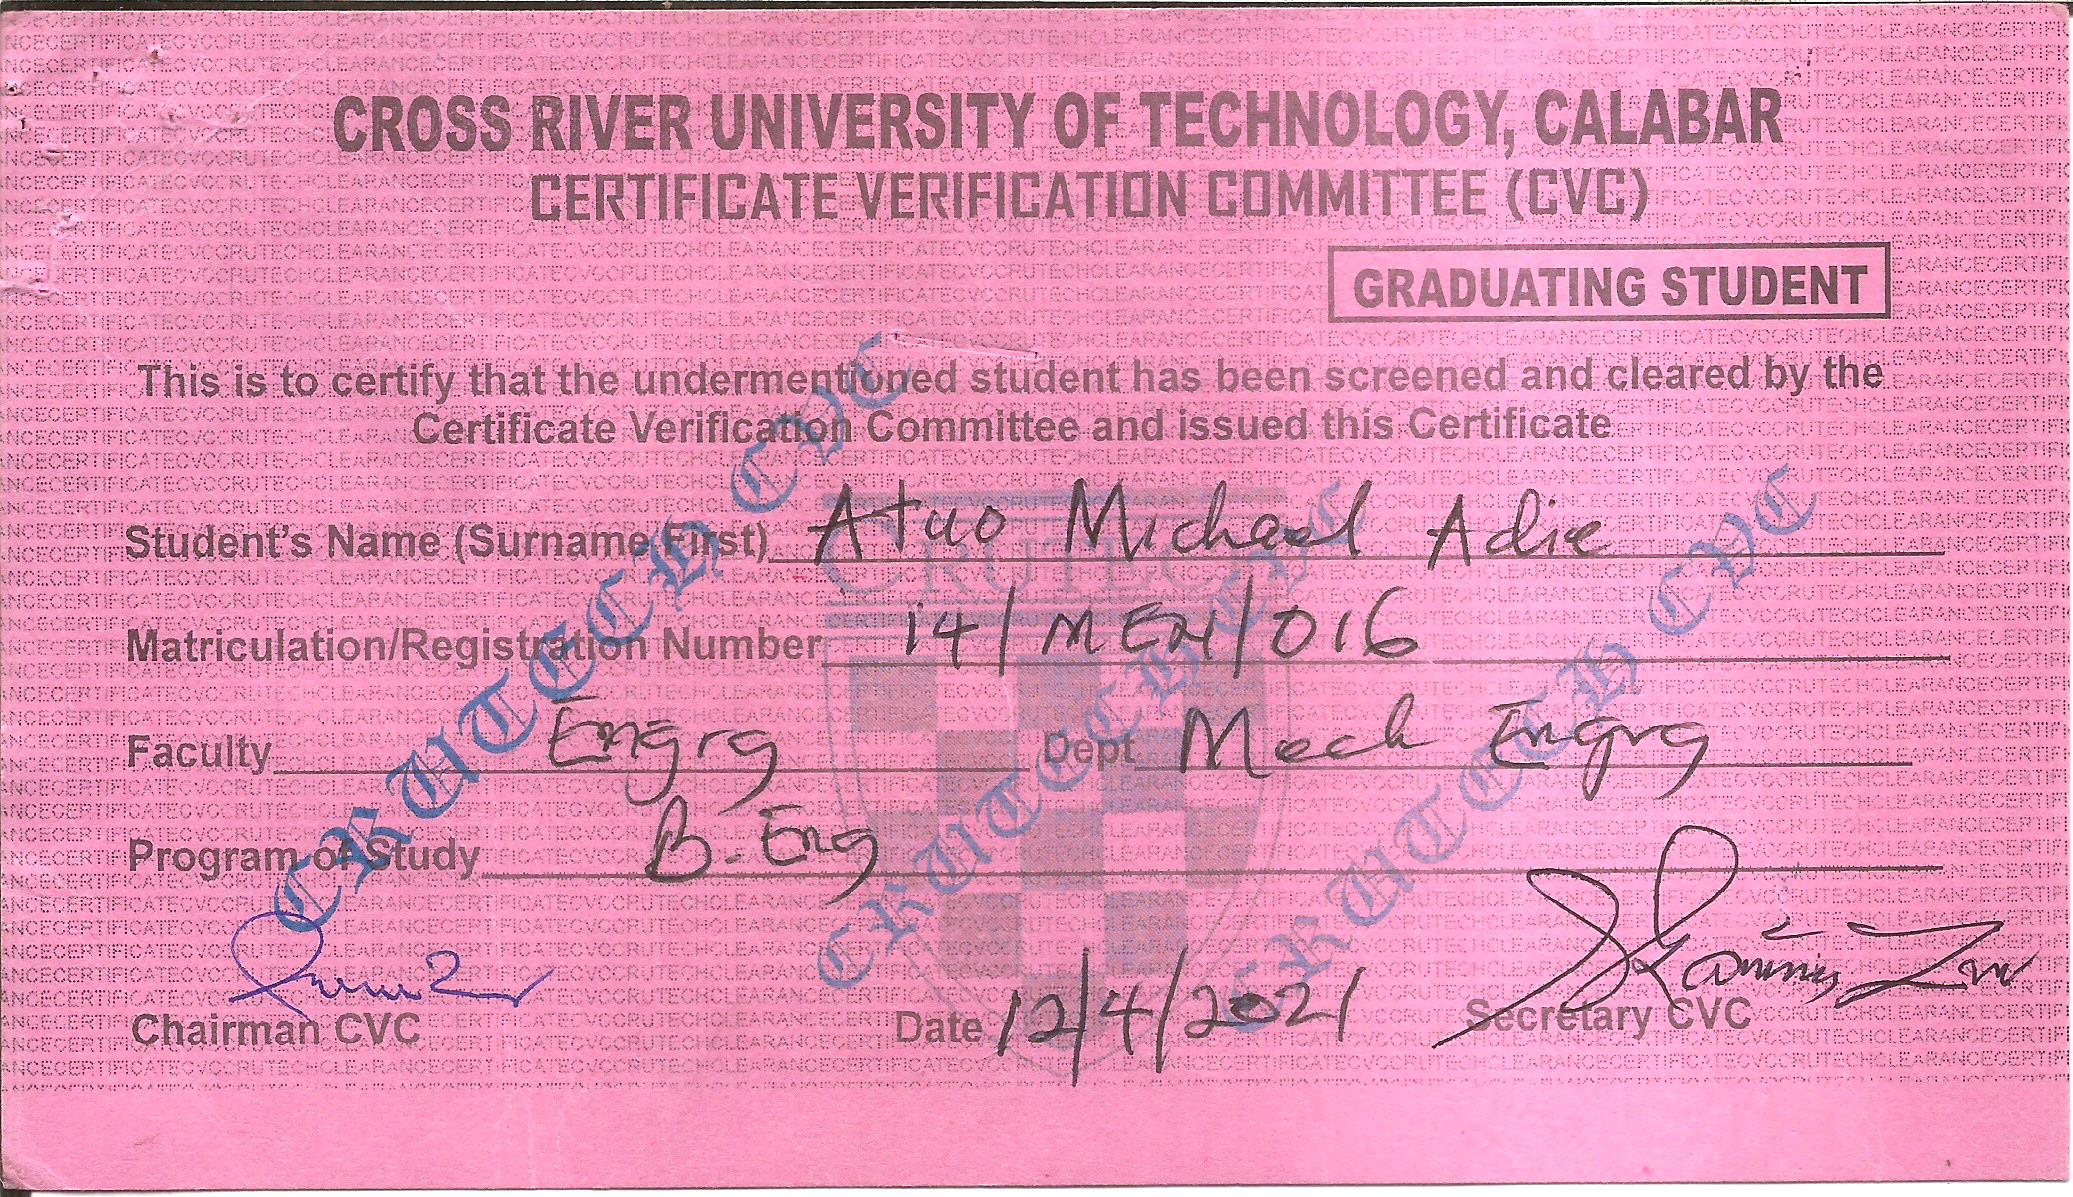 CROSS RIVER UNIVERSITY OF TECHNOLOGY, CALABAR
CERTIFICATE VERIFICATION COMMITTEE (CVC)
GRADUATING STUDENT
This is to certify that the undermentioned student has been screened and cleared by the
Certificate Verification Committee and issued this Certificate
Student's Name (Surname First) Atuo Michael Adie
Matriculation/Registration Number 14/MEN/016
Faculty Engrg Dept Mech Engrg
Program of Study B-Eng
Chairman CVC Date 12/4/2021 Secretary CVC
CRUTECH CVC
CRUTECH CVC
CRUTECH CVC
CRUTECH